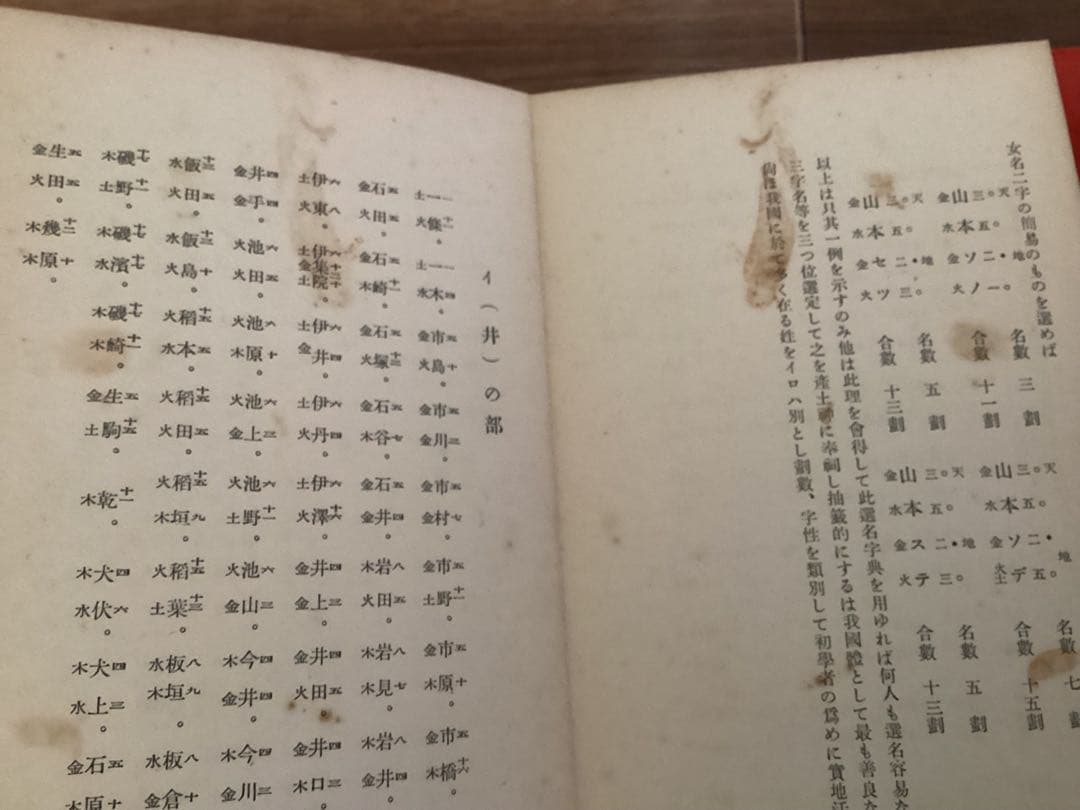 女名二字の簡易のものを選めば
金山三。天 水本五。 金ソ二・地 火ノ一。 名數 三劃 合數 十一劃
金山三。天 水本五。 金ソ二・地 火土デ五。 名數 七 合數 十五劃
金山三。天 水本五。 金セ二・地 火ツ三。 名數 五劃 合數 十三劃
金山三。天 水本五。 金ス二・地 火テ三。 名數 五劃 合數 十三劃
以上は只其一例を示すのみ他は此理を會得して此選名字典を用ゆれば何人も選名容易な
三字名等を三つ位選定して之を產土神に奉祠し抽籤的にするは我國體として最も善良な
尙ほ我國に於て多く在る姓をイロハ別とし劃數、字性を類別して初學者の爲めに實地活
イ(井)の部
土一一 火條十一。 土一一 水木四。 金市五 火島十。 金市五 金川三。 金市五 金村七。 金市五 土野十一。 金市五 木原十。 金市五 木橋十六。
金石五 火田五。 金石五 木崎十一。 金石五 火塚十三。 金石五 木谷七。 金石五 金井四。 木岩八 火田五。 木岩八 木見七。 木岩八 金井四。
土伊六 火東八。 土伊六 金集十二 土院十。 土伊六 金井四。 土伊六 火丹四。 土伊六 火澤十六。 金井四 金上三。 金井四 火田五。 金井四 木口三。
金井四 金手四。 火池六 火田五。 火池六 木原十。 火池六 金上三。 火池六 土野十一。 火池六 金山三。 木今四 金井四。 木今四 金川三
水飯十三 火田五。 水飯十三 火島十。 火稻十五 水本五。 火稻十五 火田五。 火稻十五 木垣九。 火稻十五 土葉十三。 水板八 木垣九。 水板八 金倉十
木磯十七 土野十一。 木磯十七 水濱十七。 木磯十七 木崎十一。 金生五 土駒十五。 木乾十一。 木犬四 水伏六。 木犬四 水上三。 金石五 木原十
金生五 火田五。 木幾十二 木原十。